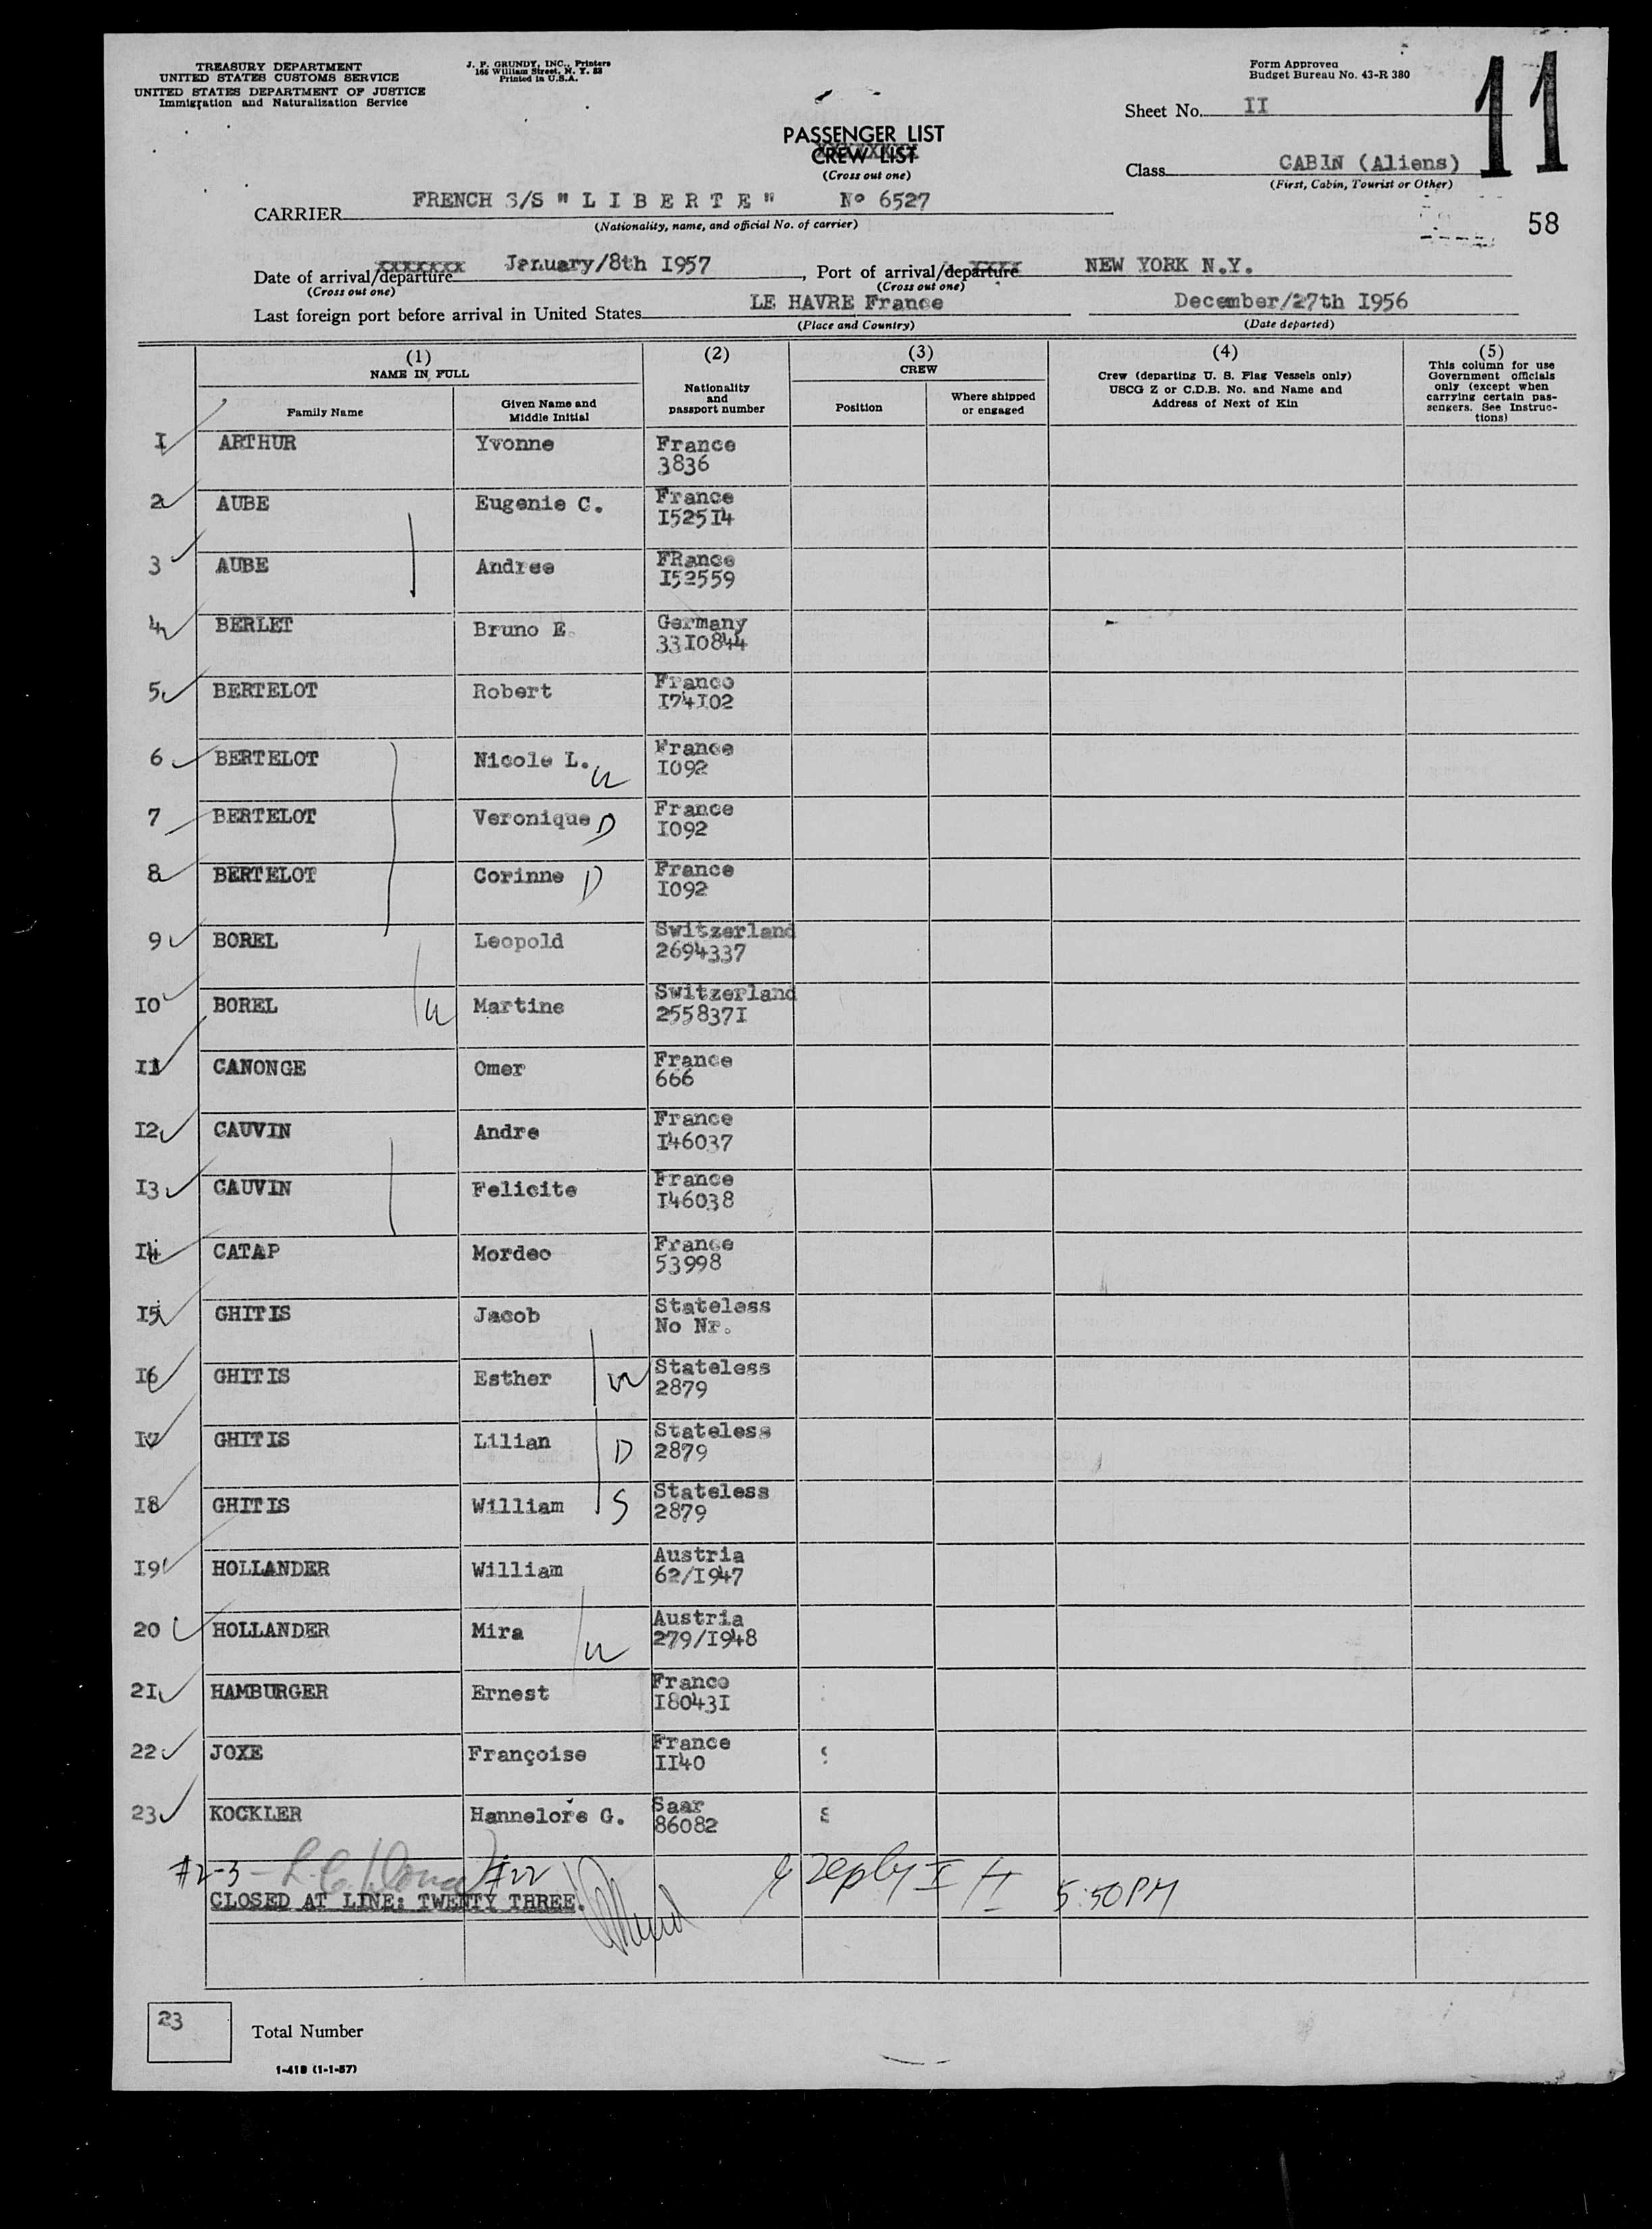 TREASURY DEPARTMENT
UNITED STATES CUSTOMS SERVICE
UNITED STATES DEPARTMENT OF JUSTICE
Immigration and Naturalization Service
J. P. GRUNDY, INC., Printers
166 William Street, N. Y. 38
Printed in U.S.A.
Form Approved
Budget Bureau No. 43-R 380
11
Sheet No. II
PASSENGER LIST
CREW LIST
(Cross out one)
Class CABIN (Aliens)
(First, Cabin, Tourist or Other)
CARRIER FRENCH S/S " L I B E R T E " Nº 6527
(Nationality, name, and official No. of carrier)
58
Date of arrival/departure January/8th I957, Port of arrival/departure NEW YORK N.Y.
(Cross out one) (Cross out one)
Last foreign port before arrival in United States LE HAVRE France December/27th I956
(Place and Country) (Date departed)
(1) NAME IN FULL (2) (3) CREW (4) (5)
Family Name Given Name and Middle Initial Nationality and passport number Position Where shipped or engaged Crew (departing U. S. Flag Vessels only) USCG Z or C.D.B. No. and Name and Address of Next of Kin This column for use Government officials only (except when carrying certain passengers. See Instructions)
I ARTHUR Yvonne France 3836
2 AUBE Eugenie C. France I525I4
3 AUBE Andree FRance I52559
4 BERLET Bruno E. Germany 33I0844
5 BERTELOT Robert France I74I02
6 BERTELOT Nicole L. W France I092
7 BERTELOT Veronique D France I092
8 BERTELOT Corinne D France I092
9 BOREL Leopold Switzerland 2694337
I0 BOREL W Martine Switzerland 255837I
II CANONGE Omer France 666
I2 CAUVIN Andre France I46037
I3 CAUVIN Felicite France I46038
I4 CATAP Mordec France 53998
I5 GHITIS Jacob Stateless No Nr.
I6 GHITIS Esther W Stateless 2879
I7 GHITIS Lilian D Stateless 2879
I8 GHITIS William S Stateless 2879
I9 HOLLANDER William Austria 62/I947
20 HOLLANDER Mira W Austria 279/I948
2I HAMBURGER Ernest France I8043I
22 JOXE Françoise France II40
23 KOCKLER Hannelore G. Saar 86082
#2-3 - #22
5:50 PM
CLOSED AT LINE: TWENTY THREE.
23 Total Number
1-418 (1-1-57)